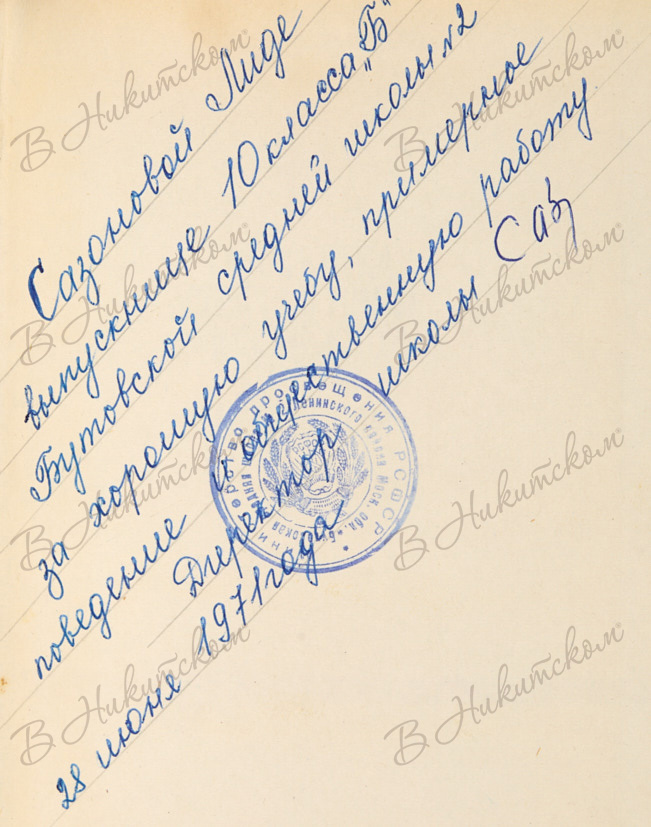 Сазоновой Лиде
выпускнице 10 класса „Б"
Бутовской средней школы №2
за хорошую учебу, примерное
поведение и общественную работу
Директор школы Саз
28 июня 1971 года
Министерство просвещения РСФСР
Ленинского района Моск. обл.
В Никитском®
В Никитском®
В Никитском®
В Никитском®
В Никитском®
В Никитском®
В Никитском®
В Никитском®